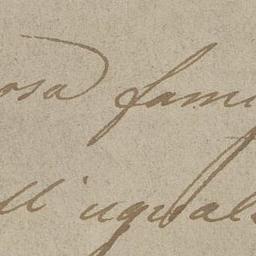 osa fami
ll'ugual